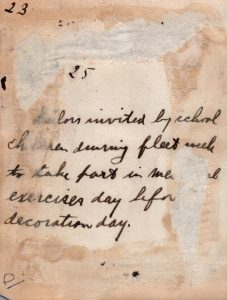 23
25
Sailors invited by school
children during fleet week
to take part in
exercises day befor
decoration day.